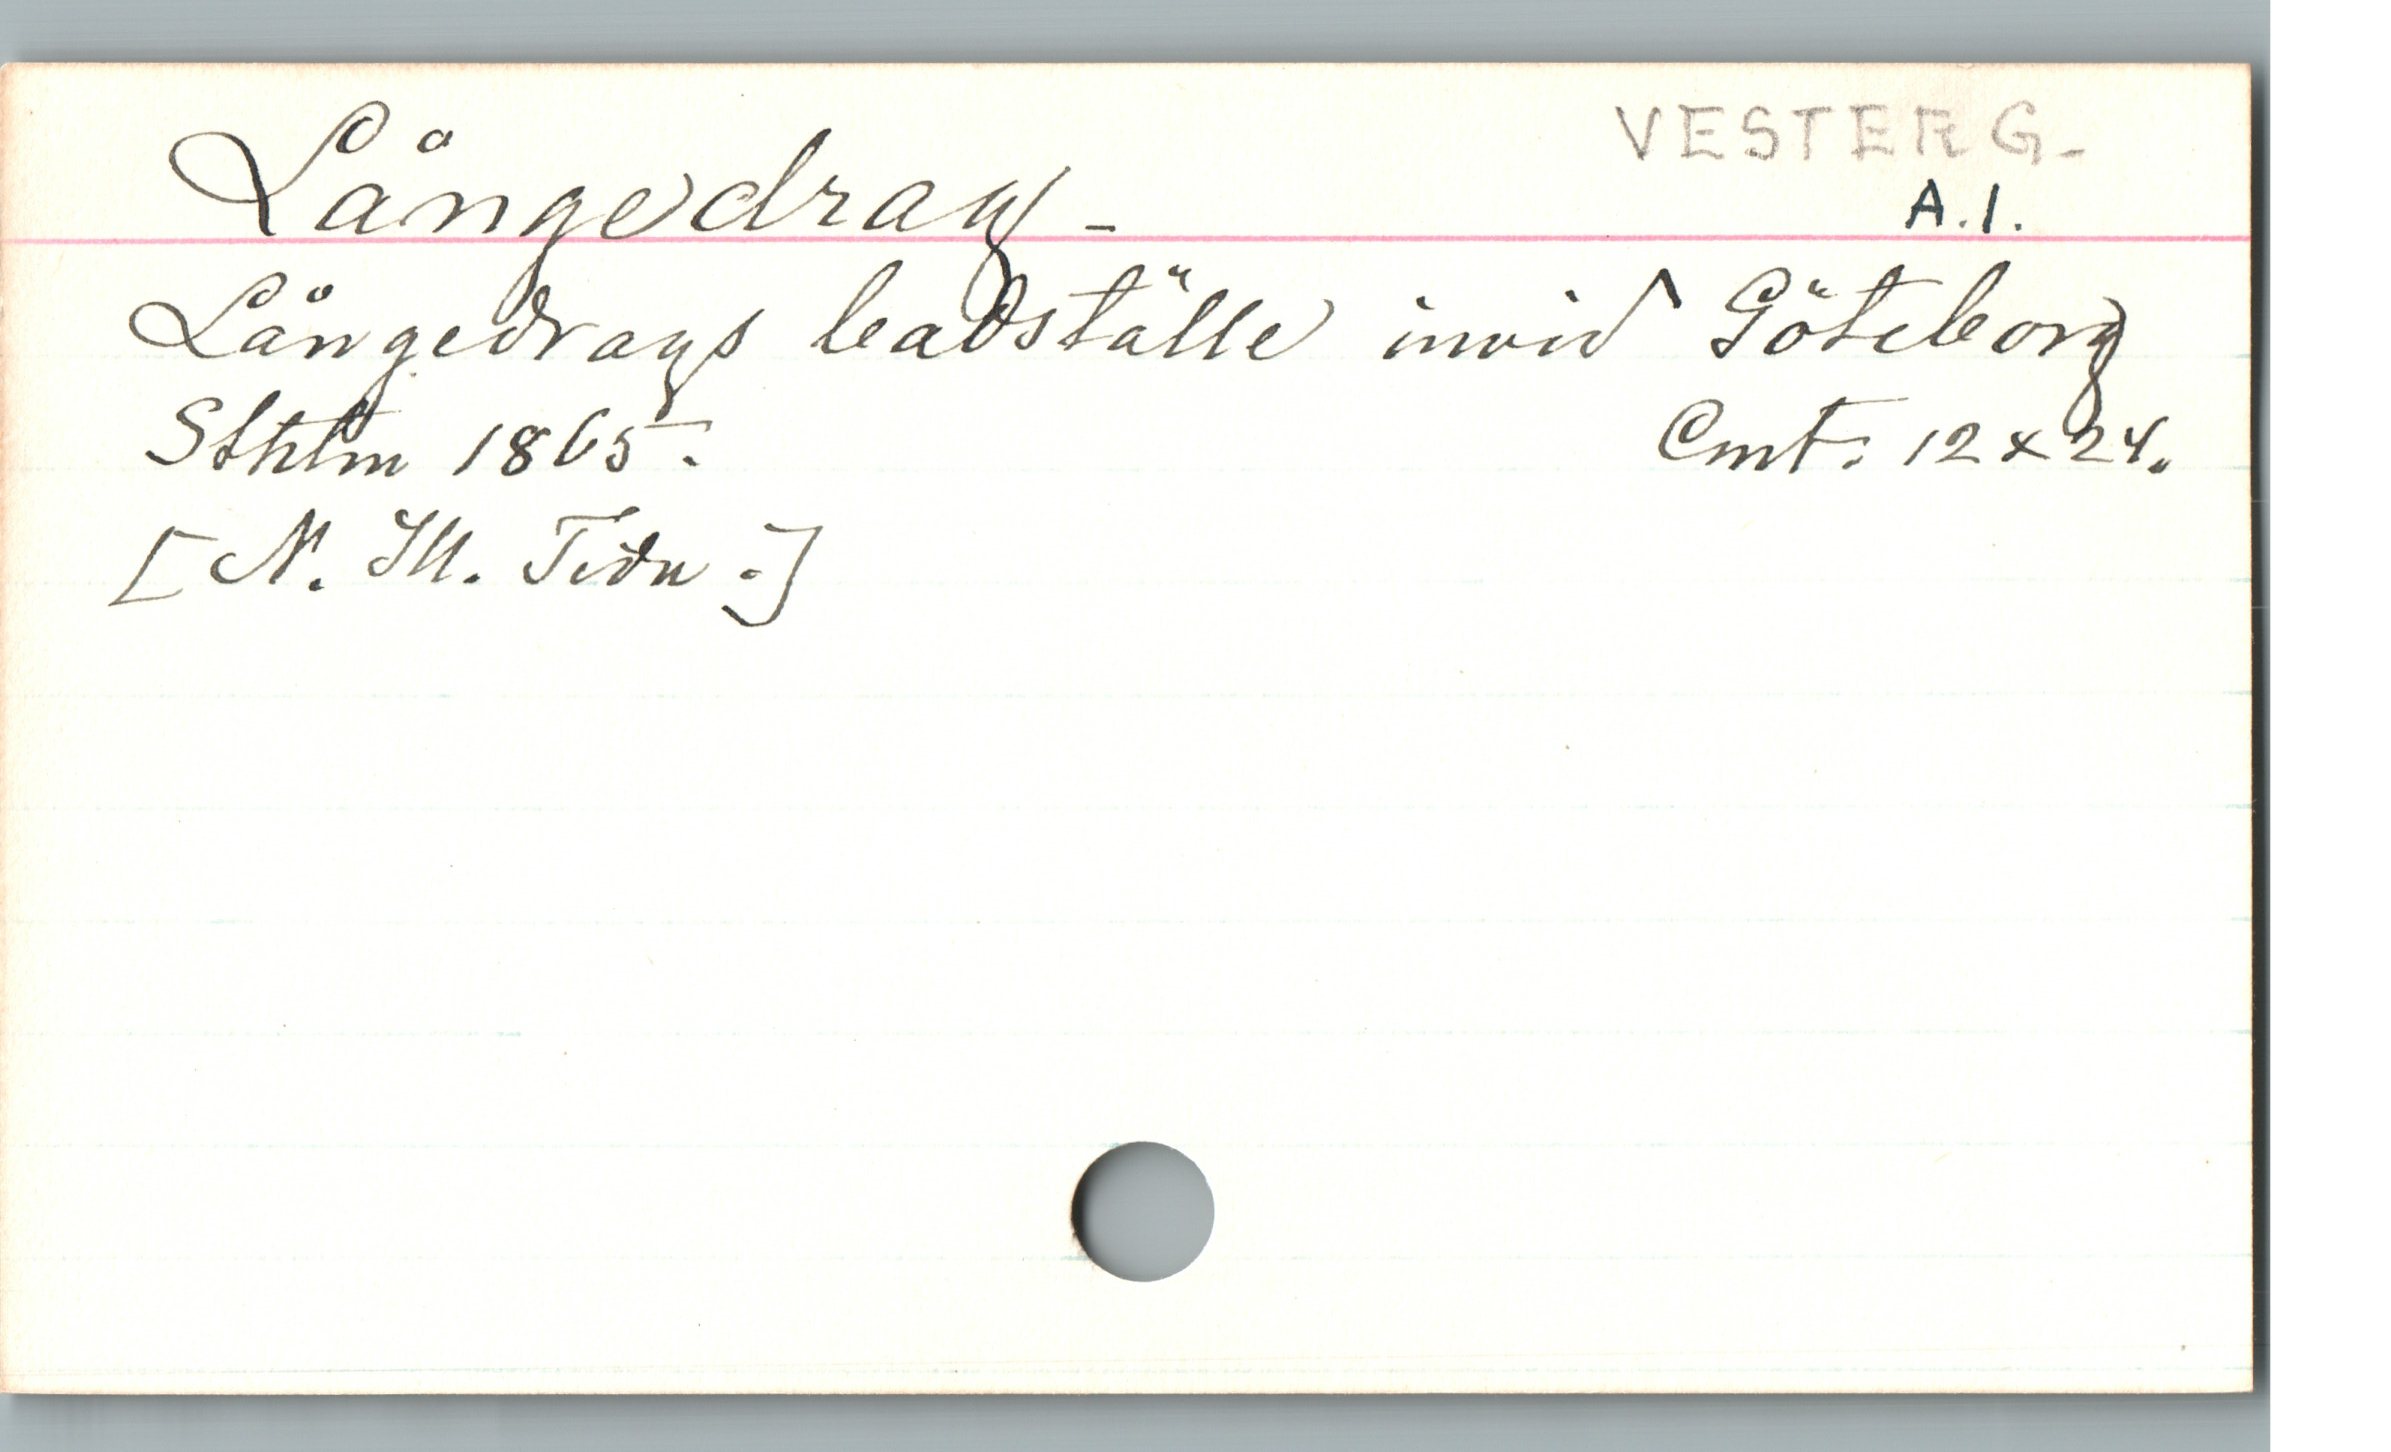 Långedrag - VESTERG-
A.1.
Långedrags badställe invid Göteborg
Sthlm 1865. Cmt. 12 x 24.
[N. Ill. Tidn.]